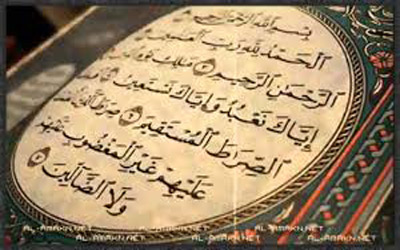 بِسْمِ اللَّهِ الرَّحْمَٰنِ الرَّحِيمِ
الْحَمْدُ لِلَّهِ رَبِّ الْعَٰلَمِينَ
الرَّحْمَٰنِ الرَّحِيمِ ۝ مَٰلِكِ
إِيَّاكَ نَعْبُدُ وَإِيَّاكَ نَسْتَعِينُ
الصِّرَاطَ الْمُسْتَقِيمَ ۝ صِرَاطَ الَّذِينَ
عَلَيْهِمْ غَيْرِ الْمَغْضُوبِ عَلَيْهِمْ
وَلَا الضَّالِّينَ ۝
AL-AMAKN.NET AL-AMAKN.NET
AL-AMAKN.NET AL-AMAKN.NET